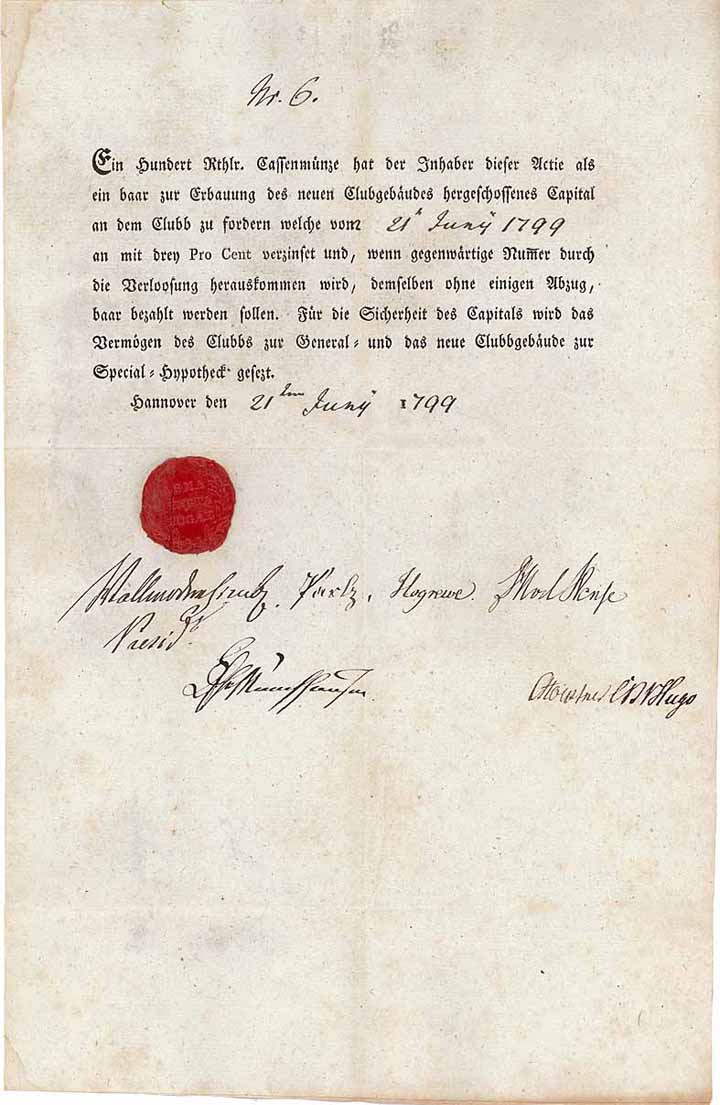 Nr. 6.
Ein Hundert Rthlr. Cassenmünze hat der Inhaber dieser Actie als
ein baar zur Erbauung des neuen Clubgebäudes hergeschossenes Capital
an dem Clubb zu fordern welche vom 21t Junÿ 1799
an mit drey Pro Cent verzinset und, wenn gegenwärtige Num̅er durch
die Verloosung herauskommen wird, demselben ohne einigen Abzug,
baar bezahlt werden sollen. Für die Sicherheit des Capitals wird das
Vermögen des Clubbs zur General- und das neue Clubbgebäude zur
Special-Hypotheck gesezt.
Hannover den 21ten Junÿ 1799
Hogrewe.
Presidt.
Hugo